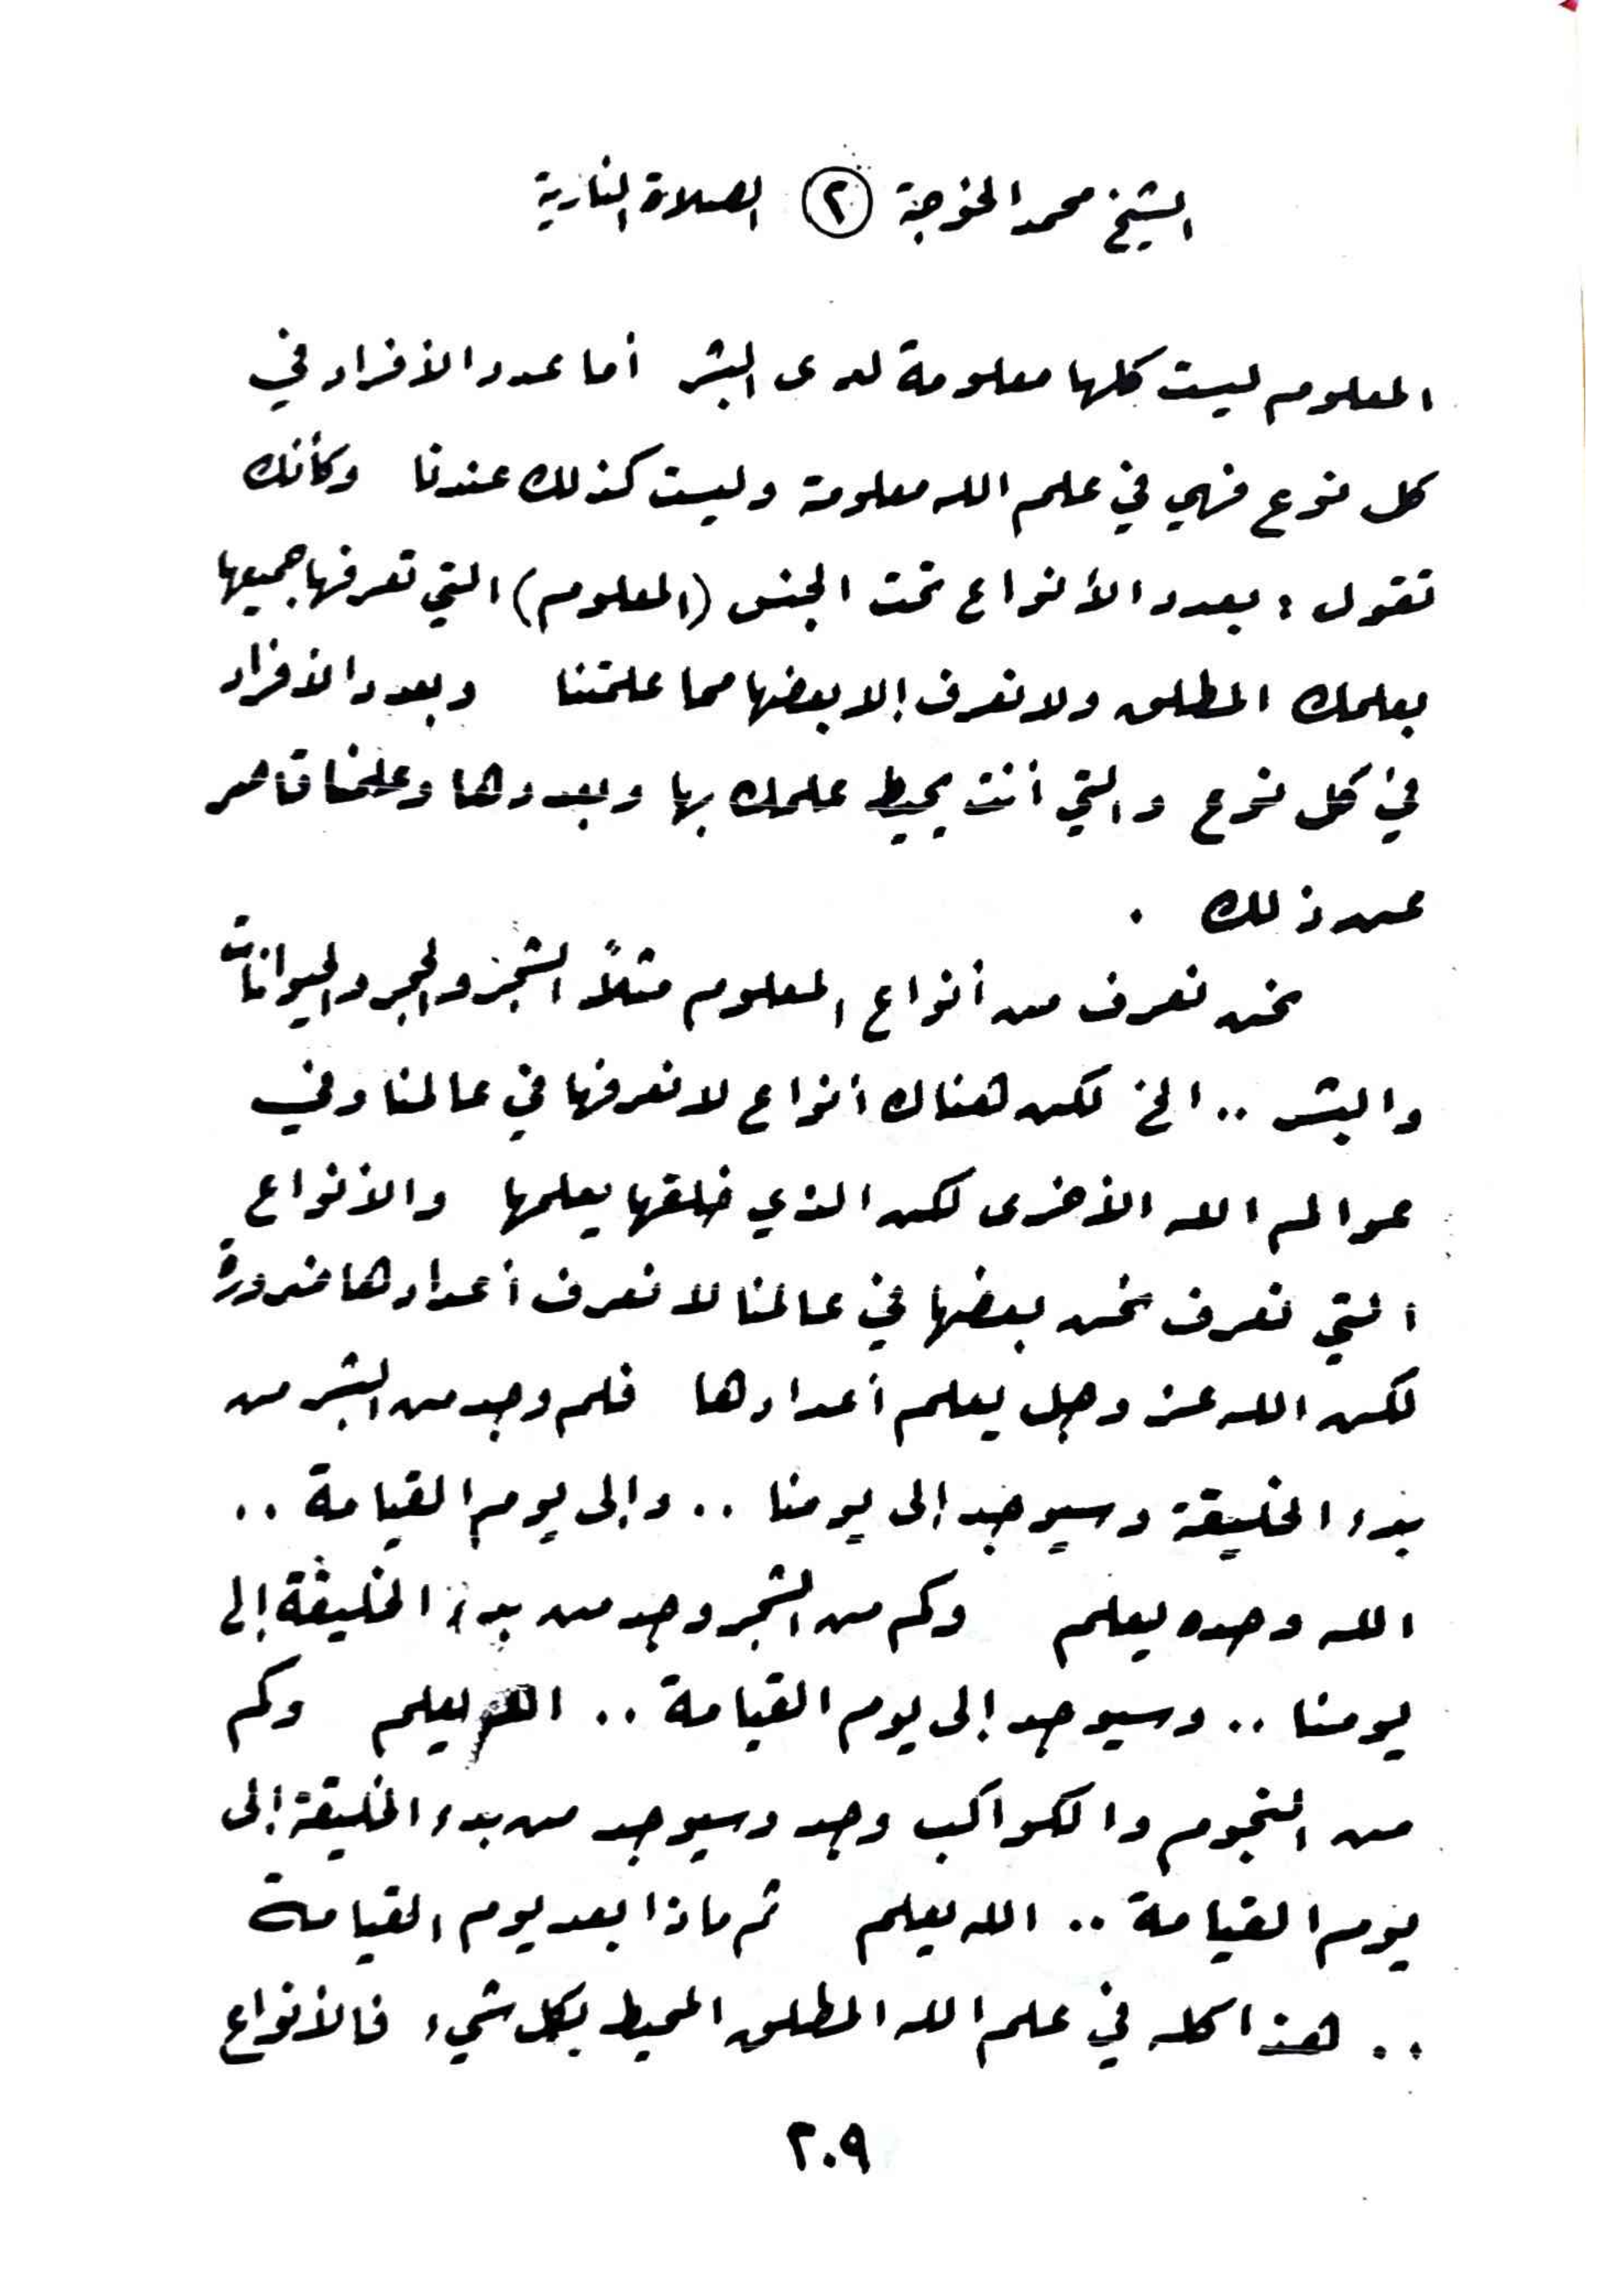 الشيخ محمد الخوجة ٢ الصلاة النارية
المعلوم ليست كلها معلومة لدى البشر أما عدد الأفراد في
كل نوع فهي في علم الله معلومة وليست كذلك عندنا وكأنك
تقول : بعدد الأنواع تحت الجنس (المعلوم) التي تعرفها جميعها
بعلمك المطلق ولا نعرف إلا بعضها مما علمتنا وبعدد الأفراد
في كل نوع والتي أنت يحيط علمك بها وبعددها وعلمنا قاصر
عن ذلك .
نحن نعرف من أنواع المعلوم مثلاً الشجر والحجر والحيوانات
والبشر .. الخ لكن هناك أنواع لا نعرفها في عالمنا وفي
عوالم الله الأخرى لكن الذي خلقها يعلمها والأنواع
التي نعرف نحن بعضها في عالمنا لا نعرف أعدادها ضرورة
لكن الله عز وجل يعلم أعدادها فلم وجد من البشر من
بدء الخليقة وسيوجد إلى يومنا .. وإلى يوم القيامة ..
الله وحده يعلم وكم من الشجر وجد من بدء الخليقة إلى
يومنا .. وسيوجد إلى يوم القيامة .. الله يعلم وكم
من النجوم والكواكب وجد وسيوجد من بدء الخليقة إلى
يوم القيامة .. الله يعلم ثم ماذا بعد يوم القيامة
.. هذا كله في علم الله المطلق المحيط بكل شيء فالأنواع
٢٠٩